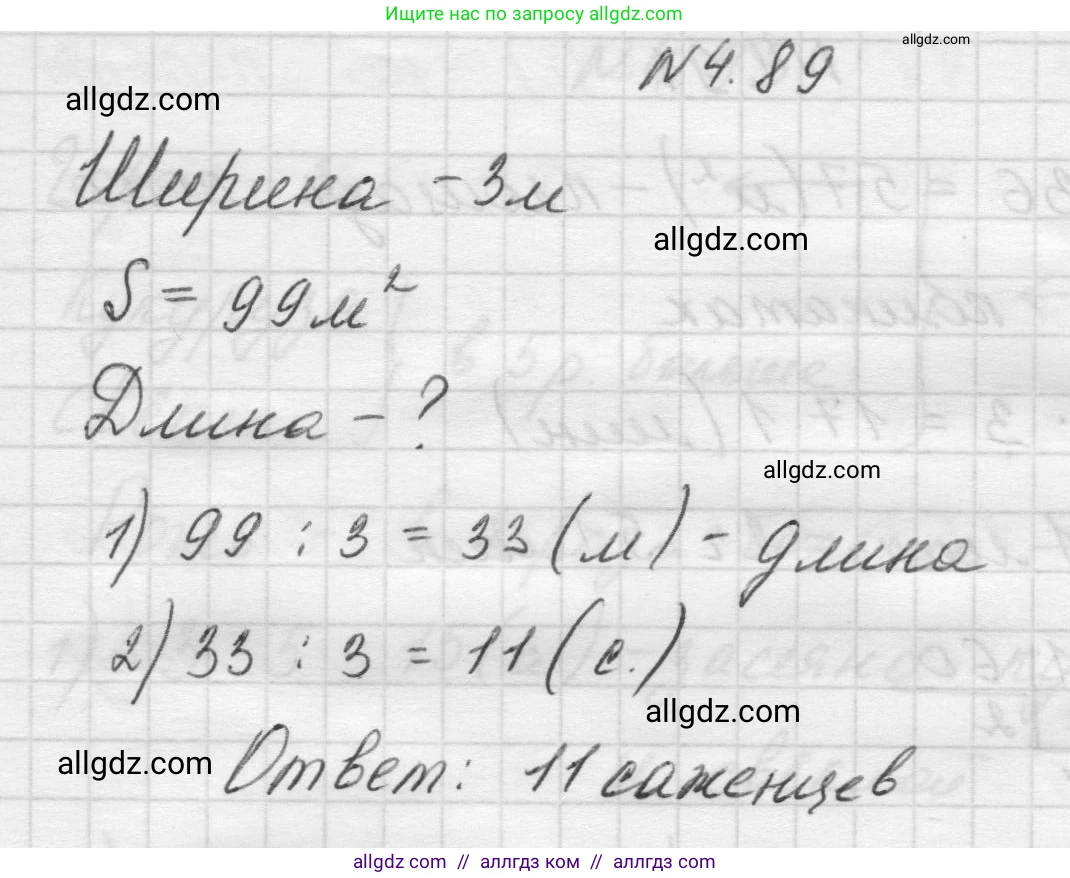 Ищите нас по запросу allgdz.com
allgdz.com
№4.89
allgdz.com
Ширина - 3м
allgdz.com
S = 99м²
Длина - ?
allgdz.com
1) 99 : 3 = 33 (м) - длина
2) 33 : 3 = 11 (с.)
allgdz.com
allgdz.com
Ответ: 11 саженцев
allgdz.com // аллгдз ком // аллгдз.com